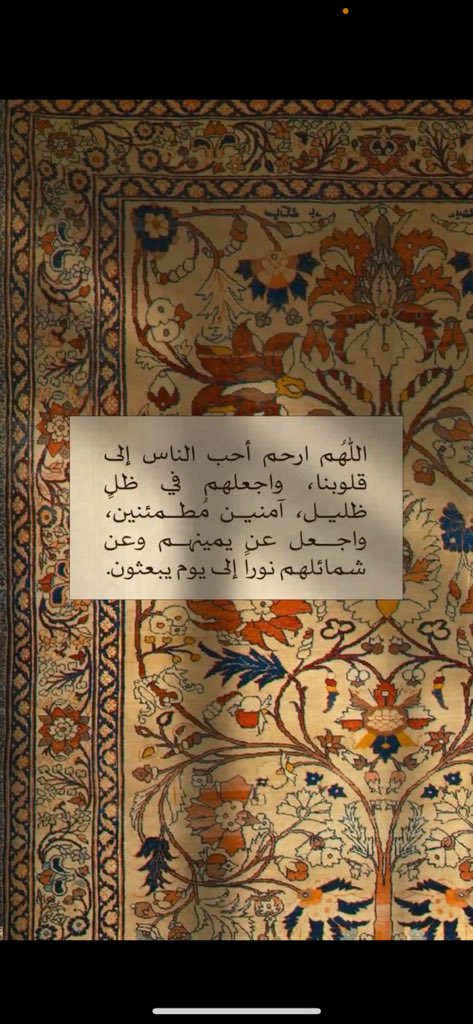 اللّٰهُم ارحم أحب الناس إلى
قلوبنا، واجعلهم في ظلٍ
ظليل، آمنين مُطمئنين،
واجعل عن يمينهم وعن
شمائلهم نوراً إلى يوم يبعثون.